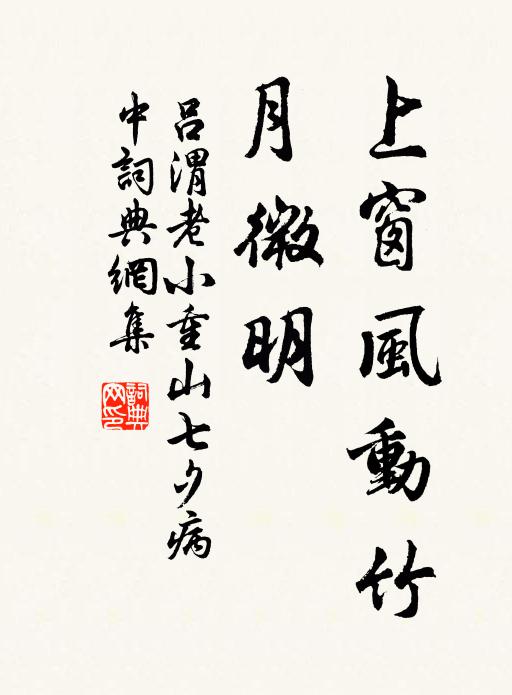 上窗風動竹
月微明
呂渭老小重山七夕病
中詞典網集
詞典
网印